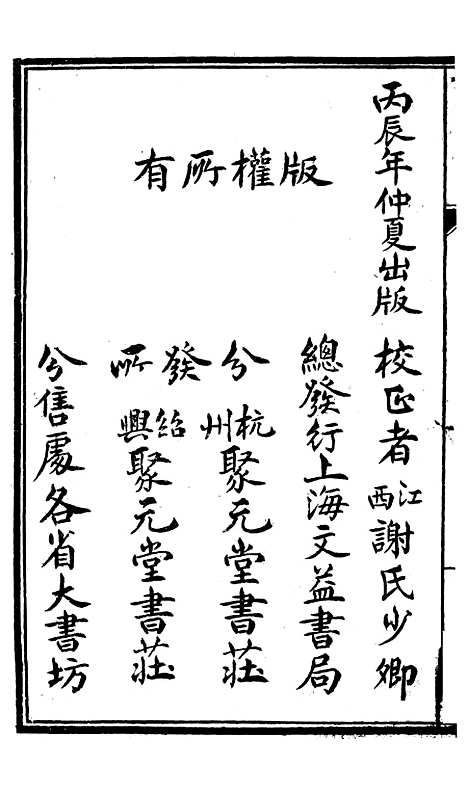 丙辰年仲夏出版
校正者江西謝氏少卿
版權所有
總發行上海文益書局
分發所
杭州聚元堂書莊
紹興聚元堂書莊
分售處各省大書坊